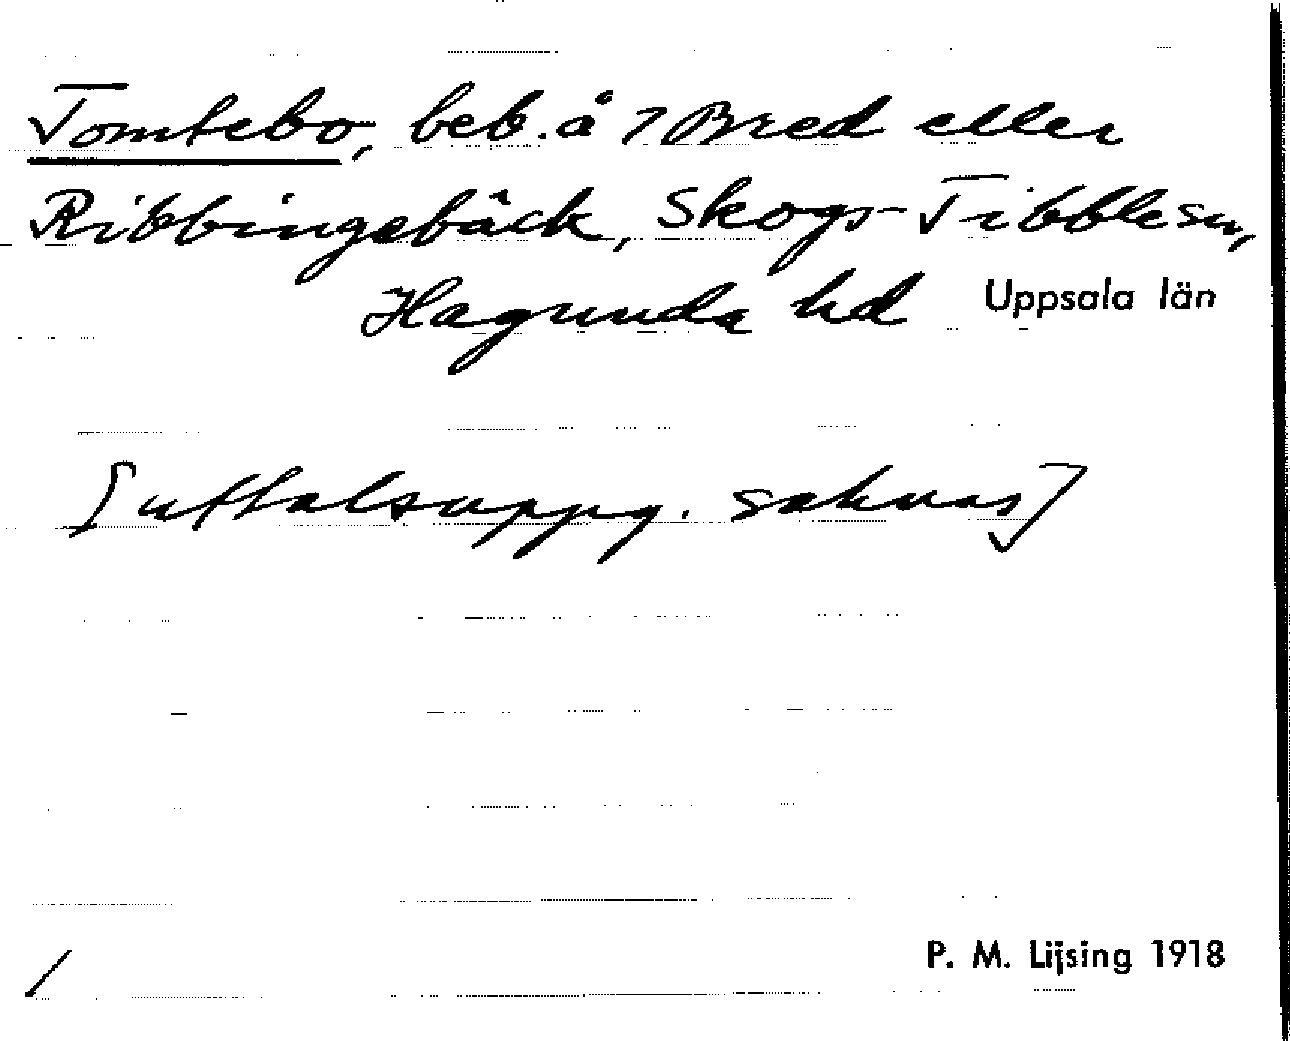 Tomtebo, beb. å ? Bred eller
Ribbingebäck, Skogs-Tibble sn,
Hagunda hd Uppsala län
[uttalsuppg. saknas]
/
P. M. Lijsing 1918